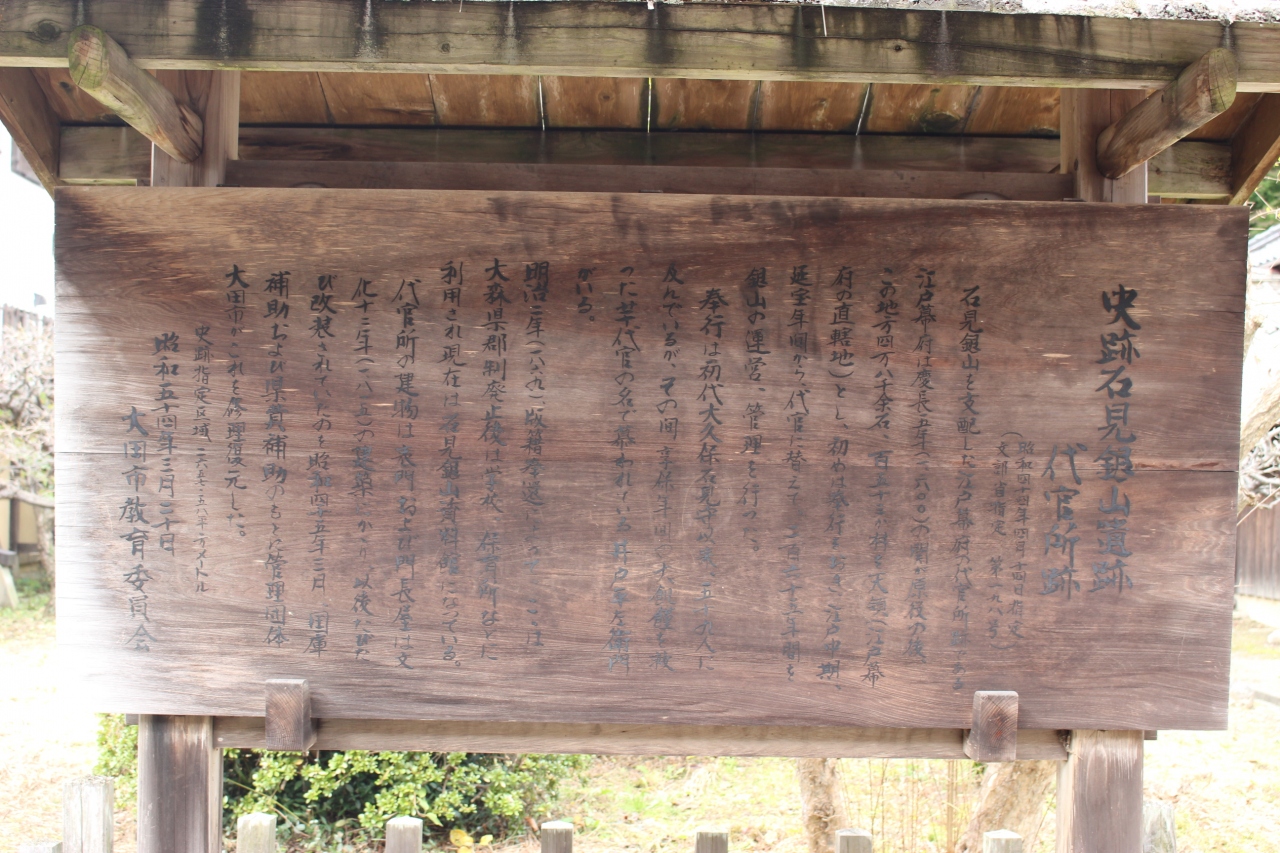 史跡石見銀山遺跡
代官所跡
(昭和四十四年四月十四日指定
文部省指定 第一九八号)
石見銀山を支配した江戸幕府の代官所跡である
江戸幕府は慶長五年(一六〇〇)の関が原役の後、
この地方四万八千余石、百五十ヶ村を天領(江戸幕
府の直轄地)とし、初めは奉行をおき江戸中期、
延宝年間から、代官に替えて二百六十五年間を
銀山の運営、管理を行った。
奉行は初代大久保石見守以来、五十九人に
及んでいるが、その間、享保年間の大飢饉を救
った芋代官の名で慕われている井戸平左衛門
がいる。
明治二年(一八六九)版籍奉還によって、ここは
大森県郡制廃止後は学校、保育所などに
利用され現在は石見銀山資料館になっている。
代官所の建物は表門および門長屋は文
化十二年(一八一五)の建築にかかり、以後たびた
び改装されていたのを昭和四十五年三月、国庫
補助および県費補助のもとに管理団体
大田市がこれを修理復元した。
史跡指定区域 平方メートル
昭和五十四年三月二十日
大田市教育委員会